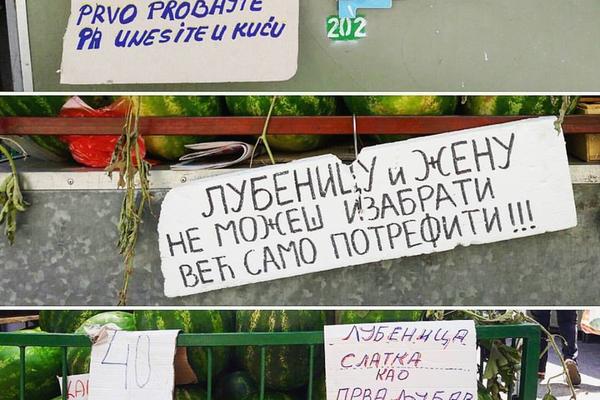 PRVO PROBAJTE
PA UNESITE U KUĆU
202
ЛУБЕНИЦУ и ЖЕНУ
НЕ МОЖЕШ ИЗАБРАТИ
ВЕЋ САМО ПОТРЕФИТИ!!!
40
ЛУБЕНИЦА
СЛАТКА
КАО
ПРВА ЉУБАВ